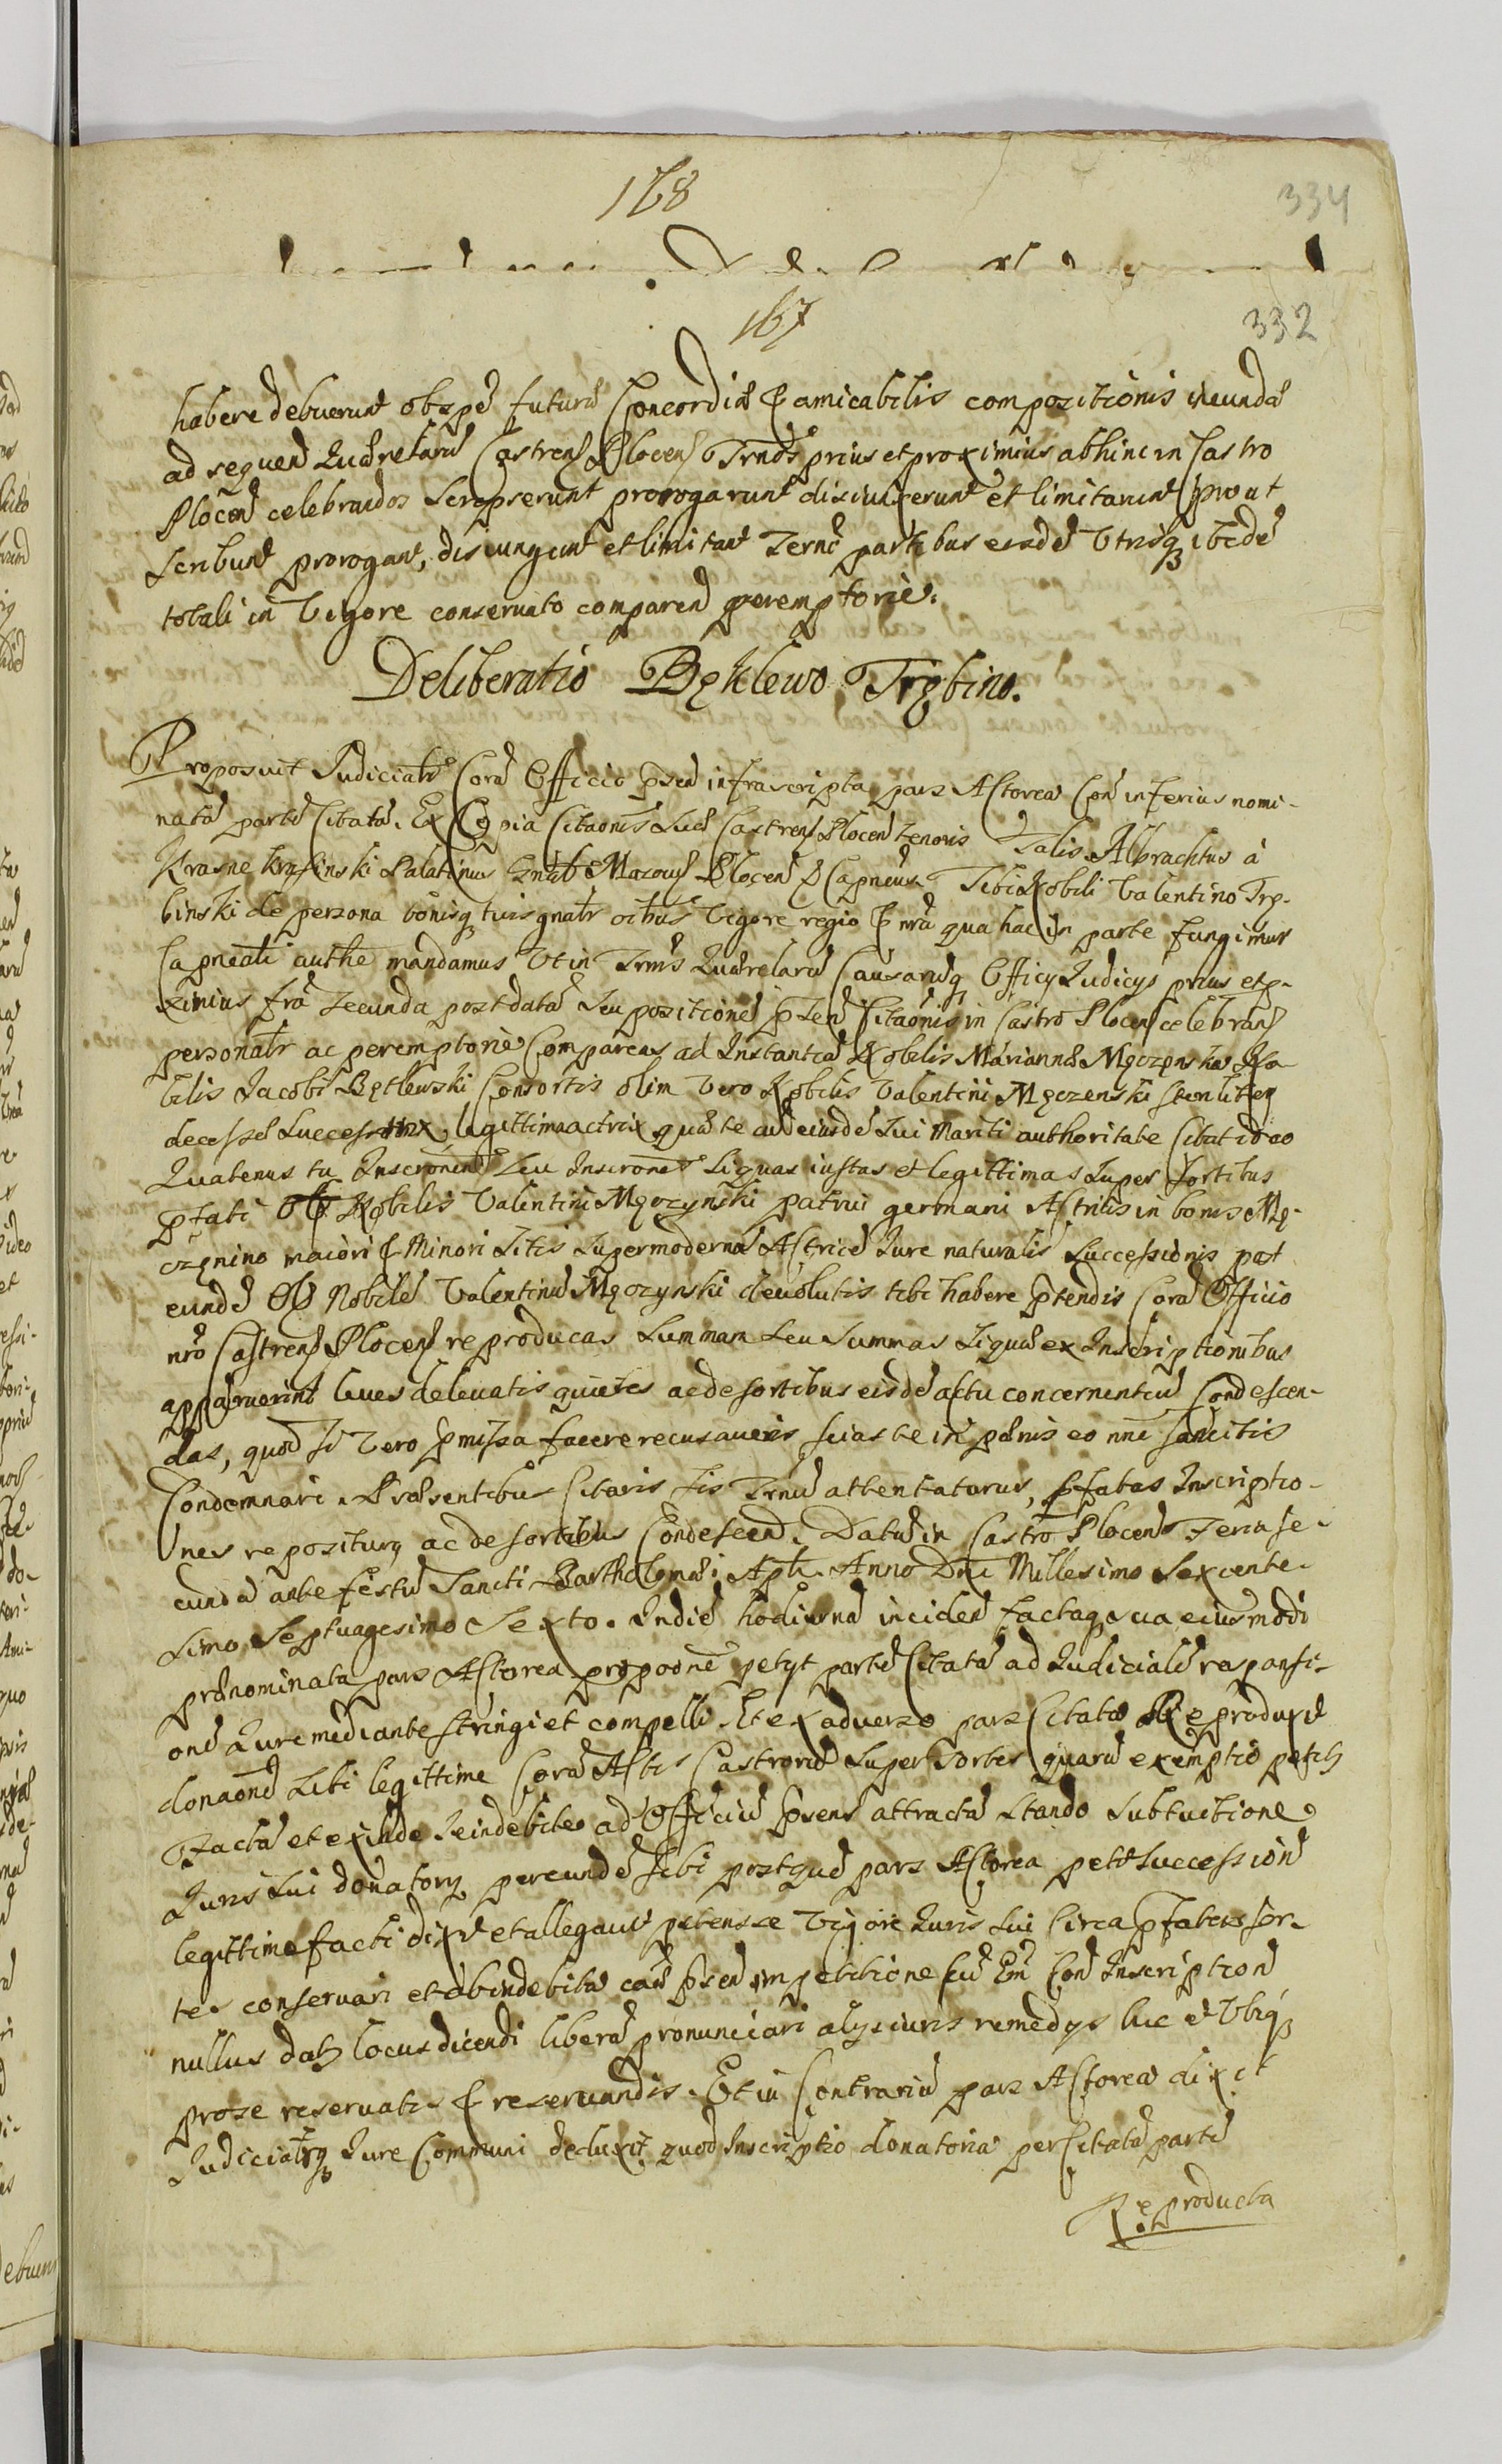 168
334
167
332
habere debuerunt ob spē futurȩ Concordiȩ & amicabilis compositionis ineundȩ
ad sequen̄ Quȩrelarū Castren̄ Plocen̄ Trnos prius et proximius abhinc in Castro
Plocen̄ celebrandos Scripserunt prorogarunt disiunxerunt et limitarunt prout
scribunt prorogant, disiungunt et limitant partibus eisdē Utrisq ibidē
totali in Vigore conservato comparen̄ peremptorie.
Deliberatio Bętlewo Trębino.
Proposuit Judicialr Corā Officio pn̄ti infrascripta pars Actorea Con̄ inferius nomi-
natā partē Citatā. Ex Copia Citaonis Sui Castren̄ Plocen̄ tenoris Talis Albrachtus à
Krasne Krasinski Palatinus Gnalis Mazouiȩ Plocen̄ Capneus. Tibi Nobili Valentino Trę-
binski de persona bonisq tuis gnalr oibus Vigore regio & nrā qua hac in parte fungimur
Capneali authe mandamus Ut in Trnis Quȩrelarū Causarūq Officij Judicijs prius et p-
ximius frā secunda post datā seu positionē pn̄tn̄ Citaonis in Castro Plocen̄ celebran̄
personalr ac peremptorie Compareas ad Instantiā Nobilis Mariannȩ Męczenska No-
bilis Jacobi Bętlewski Consortis olim vero Nobilis Valentini Męczenski steriliter
decessi Successtrix, legittima actrix quȩ te cū eiusdē sui Mariti authoritate Citat ideo
Quatenus tu Inscronem Seu Inscrones siquas iustas et legittimas super Sortibus
pfati Nobilis Valentini Męczynski patrui germani Actricis in bonis Mę-
czenino maiori & Minori sitis super modernā Actricē Jure naturalis Successionis post
eundē Nobilē Valentinū Męczynski deuolutis tibi habere ptendis Corā Officio
nrō Castren̄ Plocen̄ reproducas Summam seu Summas siquȩ ex Inscriptionibus
apparuerint leues deleuatis quietes ac de sortibus eisdē actu concernentiū Condescen-
das, quod si Vero pmissa facere recusaueris scias te in pȩnis eo nne sancitis
Condemnari. Prȩsentibus Citaris sis Trnū attentaturus, pfatas Inscriptio-
nes repositurus ac de sortibus Condescen̄. Datū in Castro Plocen̄ Feria se-
cunda ante festū Sancti Bartholomȩi Apli Anno Dni Millesimo Sexcente-
simo Septuagesimo Sexto. In diē hodiernā inciden̄ factaq sua eiusmodi
prȩnominata pars Actorea propoone petyt partē Citatā ad Judicialē responsi-
onē Jure mediante stringi et compelli. Et ex aduerso pars Citata Reproduxit
donaonē sibi legittime Corā Actis Castrorū super Sortes quarū exemptio petit
Factā et exinde se indebite ad Officiū pn̄sens attractā Stando sub tuitione
Juris sui donatorij per eundē sibi post quē pars Actorea petit successionē
legittime facti dixit et allegauit petens se Vigore Juris sui Circa pfatas sor-
tes conseruari et ab indebita impetitione con̄ Inscriptionē
nullus datur locus dicendi liberā pronunciari alijs iuris remedijs hic et Ubiq
pro se reseruatis & reseruandis. Et in Contrariū pars Actorea dixit
Judicialrq Jure Communi deduxit quod Inscriptio donatoria per Citatā partē
Reproducta